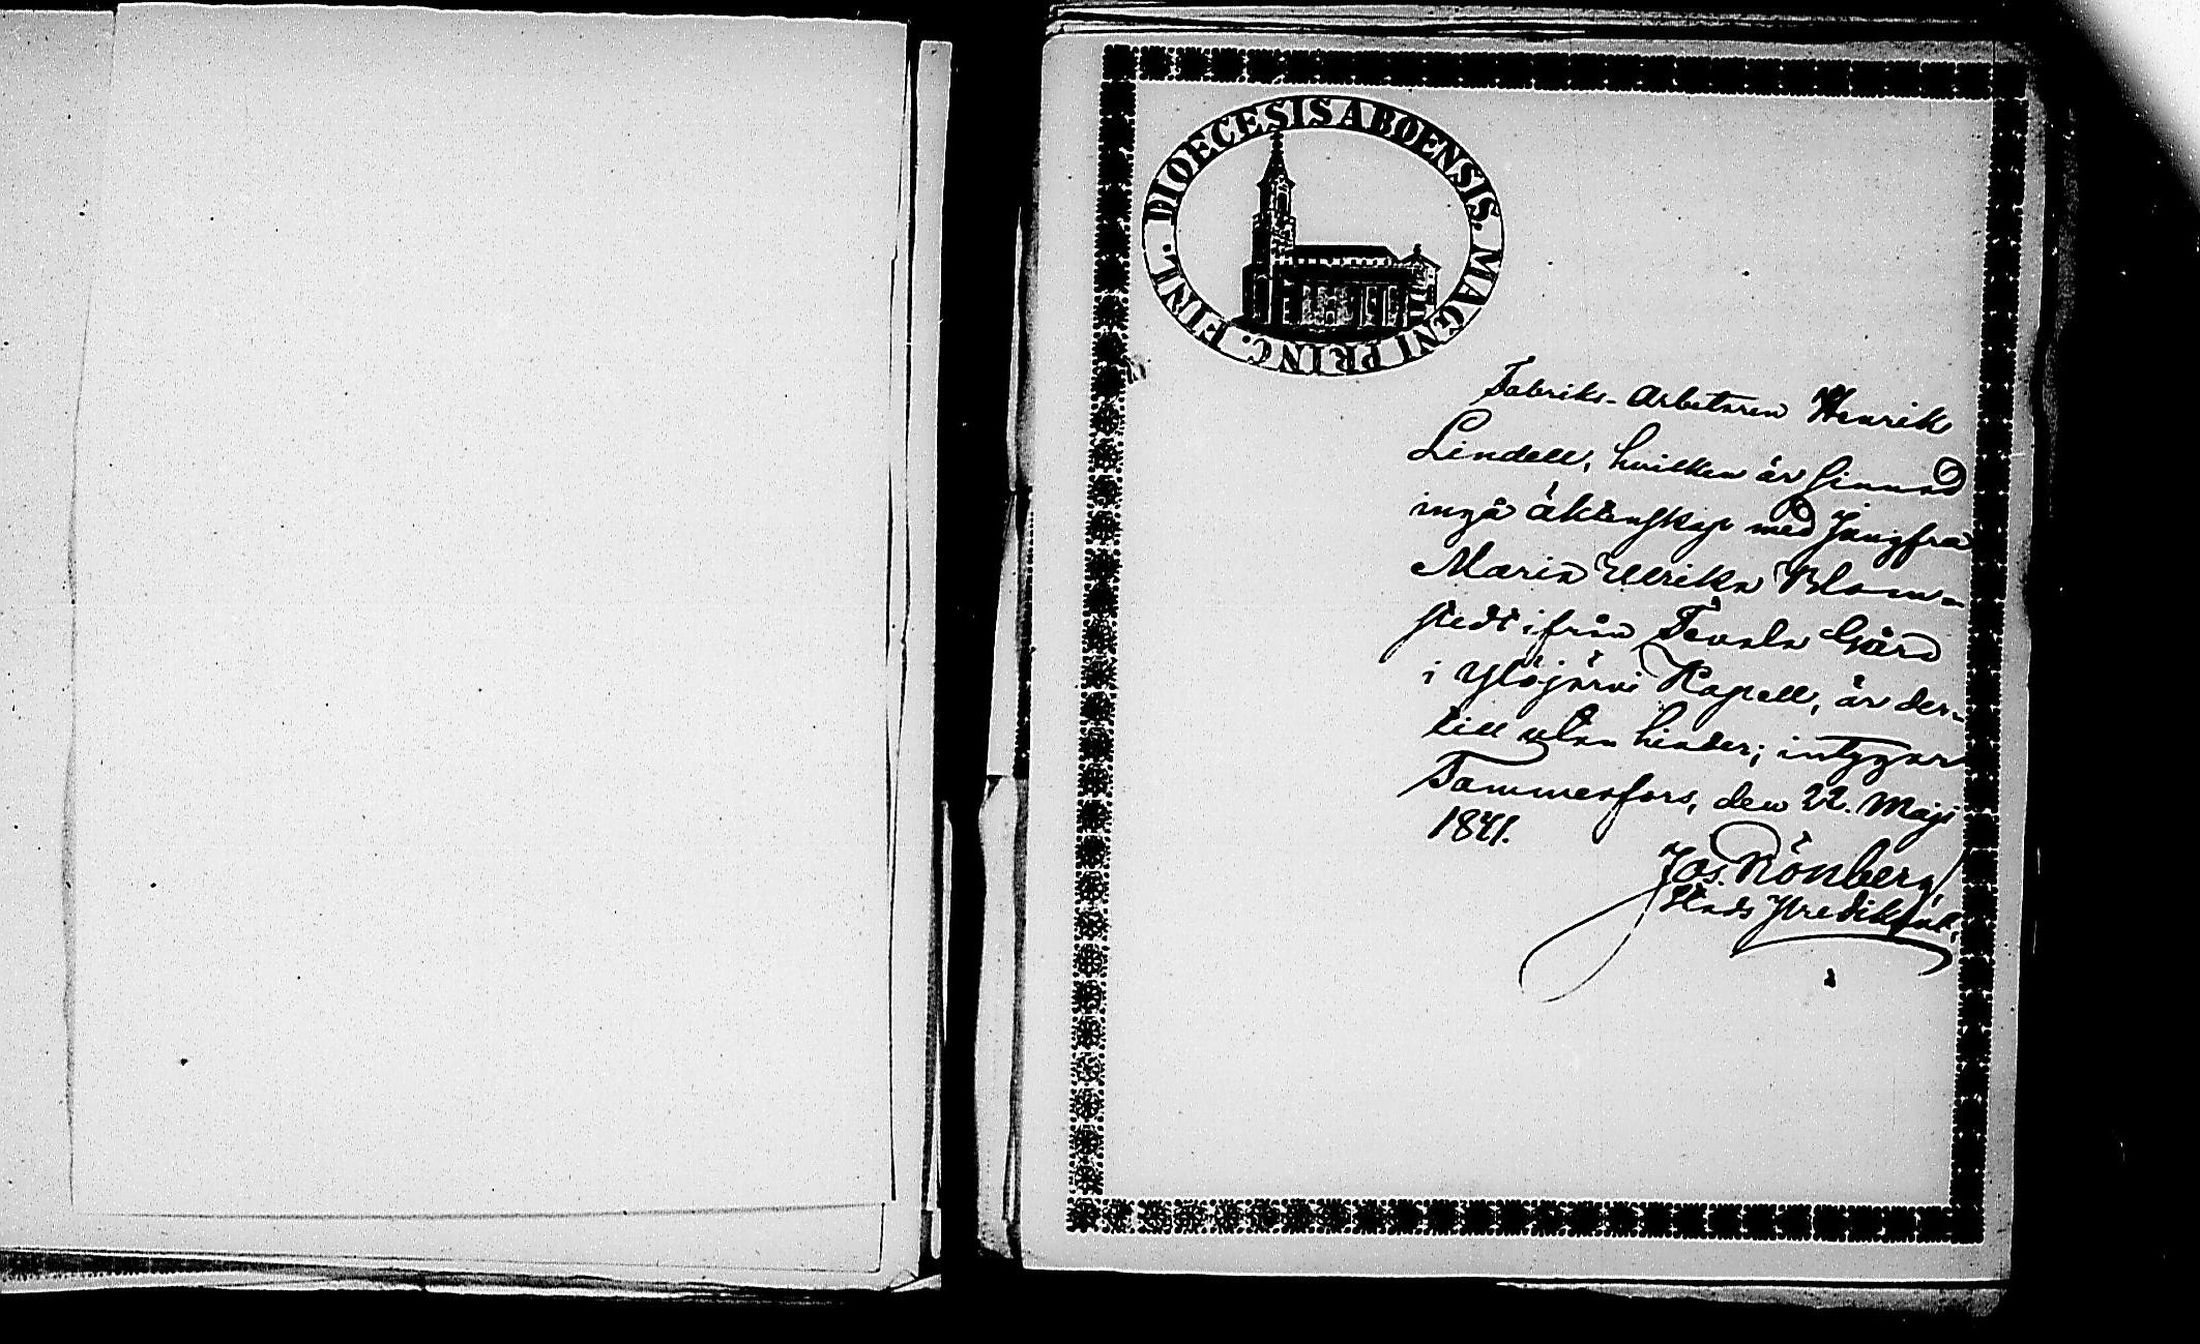 DIOECESIS ABOENSIS. MAGNI PRINC. FINL.
Fabriks-Arbetaren Henrik
Lindell, hvilken är sinnad
ingå äktenskap med Jungfru
Maria Ulrika Blom-
stedt ifrån Tevala Gård
i Ylöjärvi Kapell, är der-
till utan hinder; intygar
Tammerfors, den 22. Maji
1841.
Jos. Rönberg
Stads Predikant.